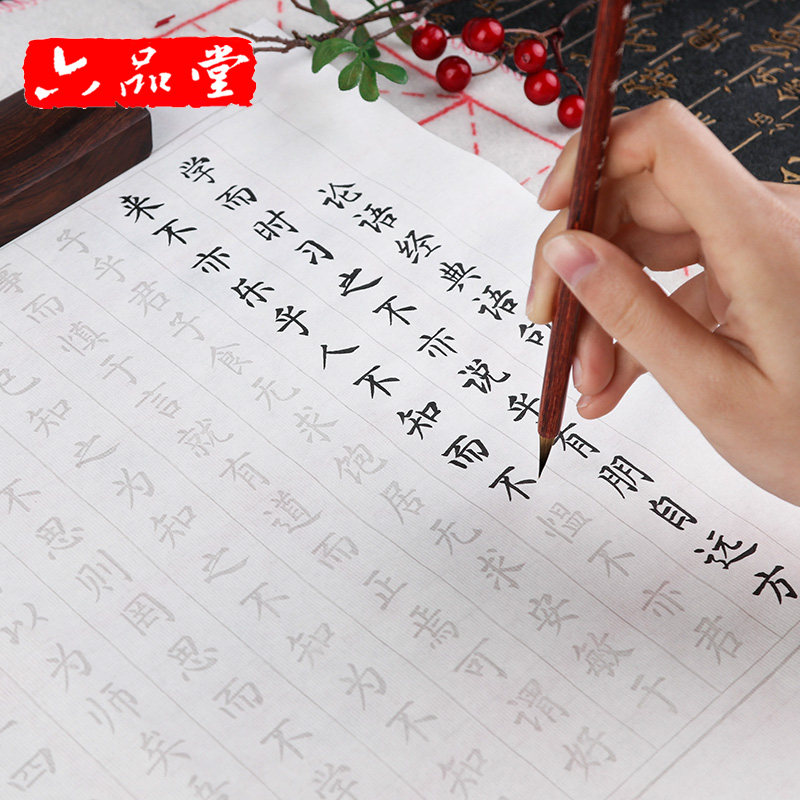 六品堂
论语经典语句
学而时习之不亦说乎有朋自远方
来不亦乐乎人不知而不愠不亦君
子乎君子食无求饱居无求安敏于
事而慎于言就有道而正焉可谓好
已知之为知之不知为不知
不思则罔思而不学
以为师矣
四